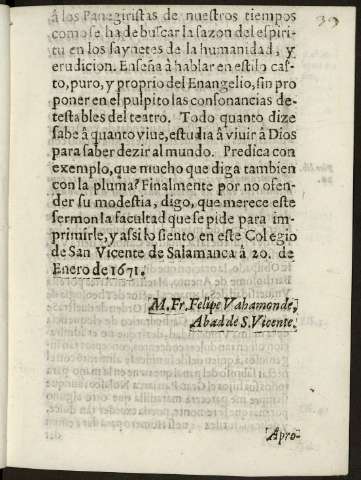 39
â los Panegiristas de nuestros tiempos
como se ha de buscar la sazon del espiri-
tu en los saynetes de la humanidad, y
erudicion. Enseña â hablar en estilo cas-
to, puro, y proprio del Enangelio, sin pro
poner en el pulpito las consonancias de-
testables del teatro. Todo quanto dize
sabe â quanto viue, estudia â viuir â Dios
para saber dezir al mundo. Predica con
exemplo, que mucho que diga tambien
con la pluma? Finalmente por no ofen-
der su modestia, digo, que merece este
sermon la facultad que se pide para im-
primirle, y assi lo siento en este Colegio
de San Vicente de Salamanca â 20. de
Enero de 1671.
M. Fr. Felipe Vahamonde,
Abad de S. Vicente.
Apro-